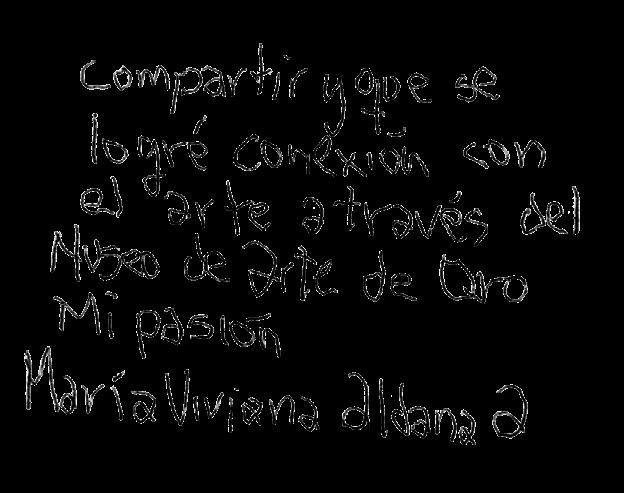 Compartir y que se
logré conexión con
el arte a través del
Museo de arte de Qro
Mi pasión
María Viviana aldana a